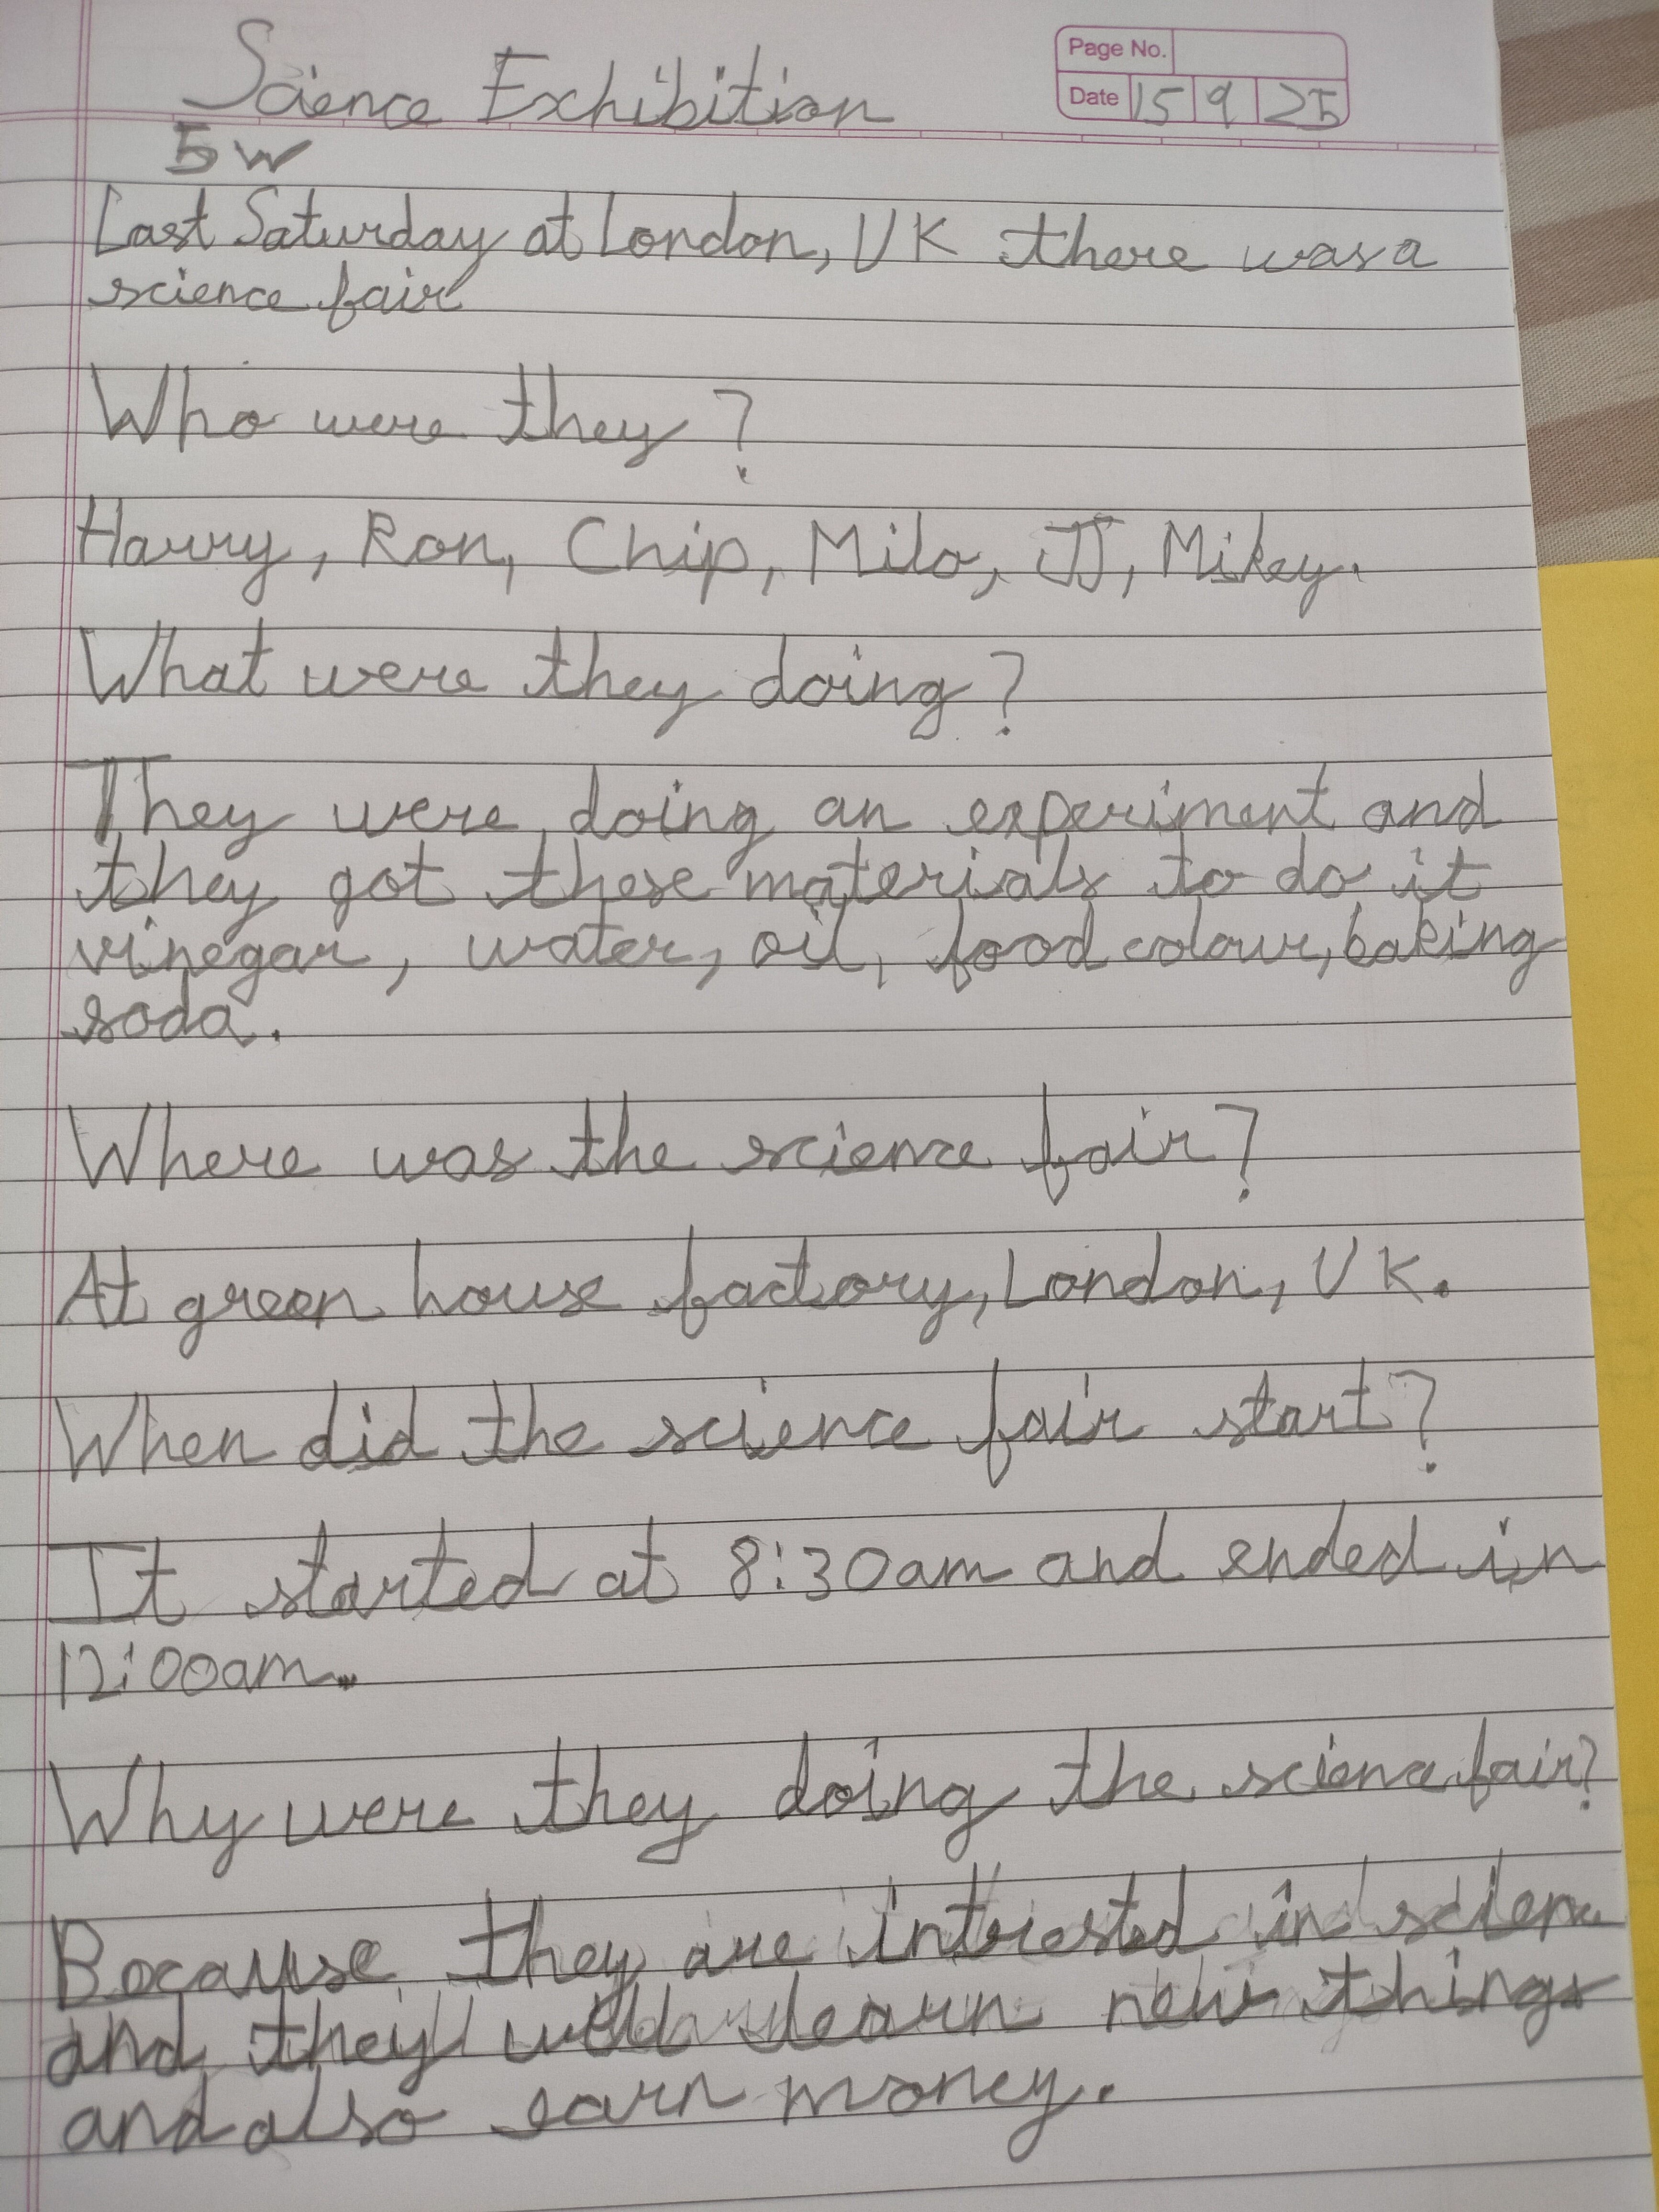 Science Exhibition
Page No.
Date 15 9 25
5 W
Last Saturday at London, UK there was a
science fair
Who were they?
Harry, Ron, Chip, Milo, JJ, Mikey.
What were they doing?
They were doing an experiment and
they got these materials to do it
vinegar, water, oil, food colour, baking
soda.
Where was the science fair?
At green house factory, London, UK.
When did the science fair start?
It started at 8:30am and ended in
12:00am.
Why were they doing the science fair?
Because they are intrested in scienc
and they will learn new things
and also earn money.